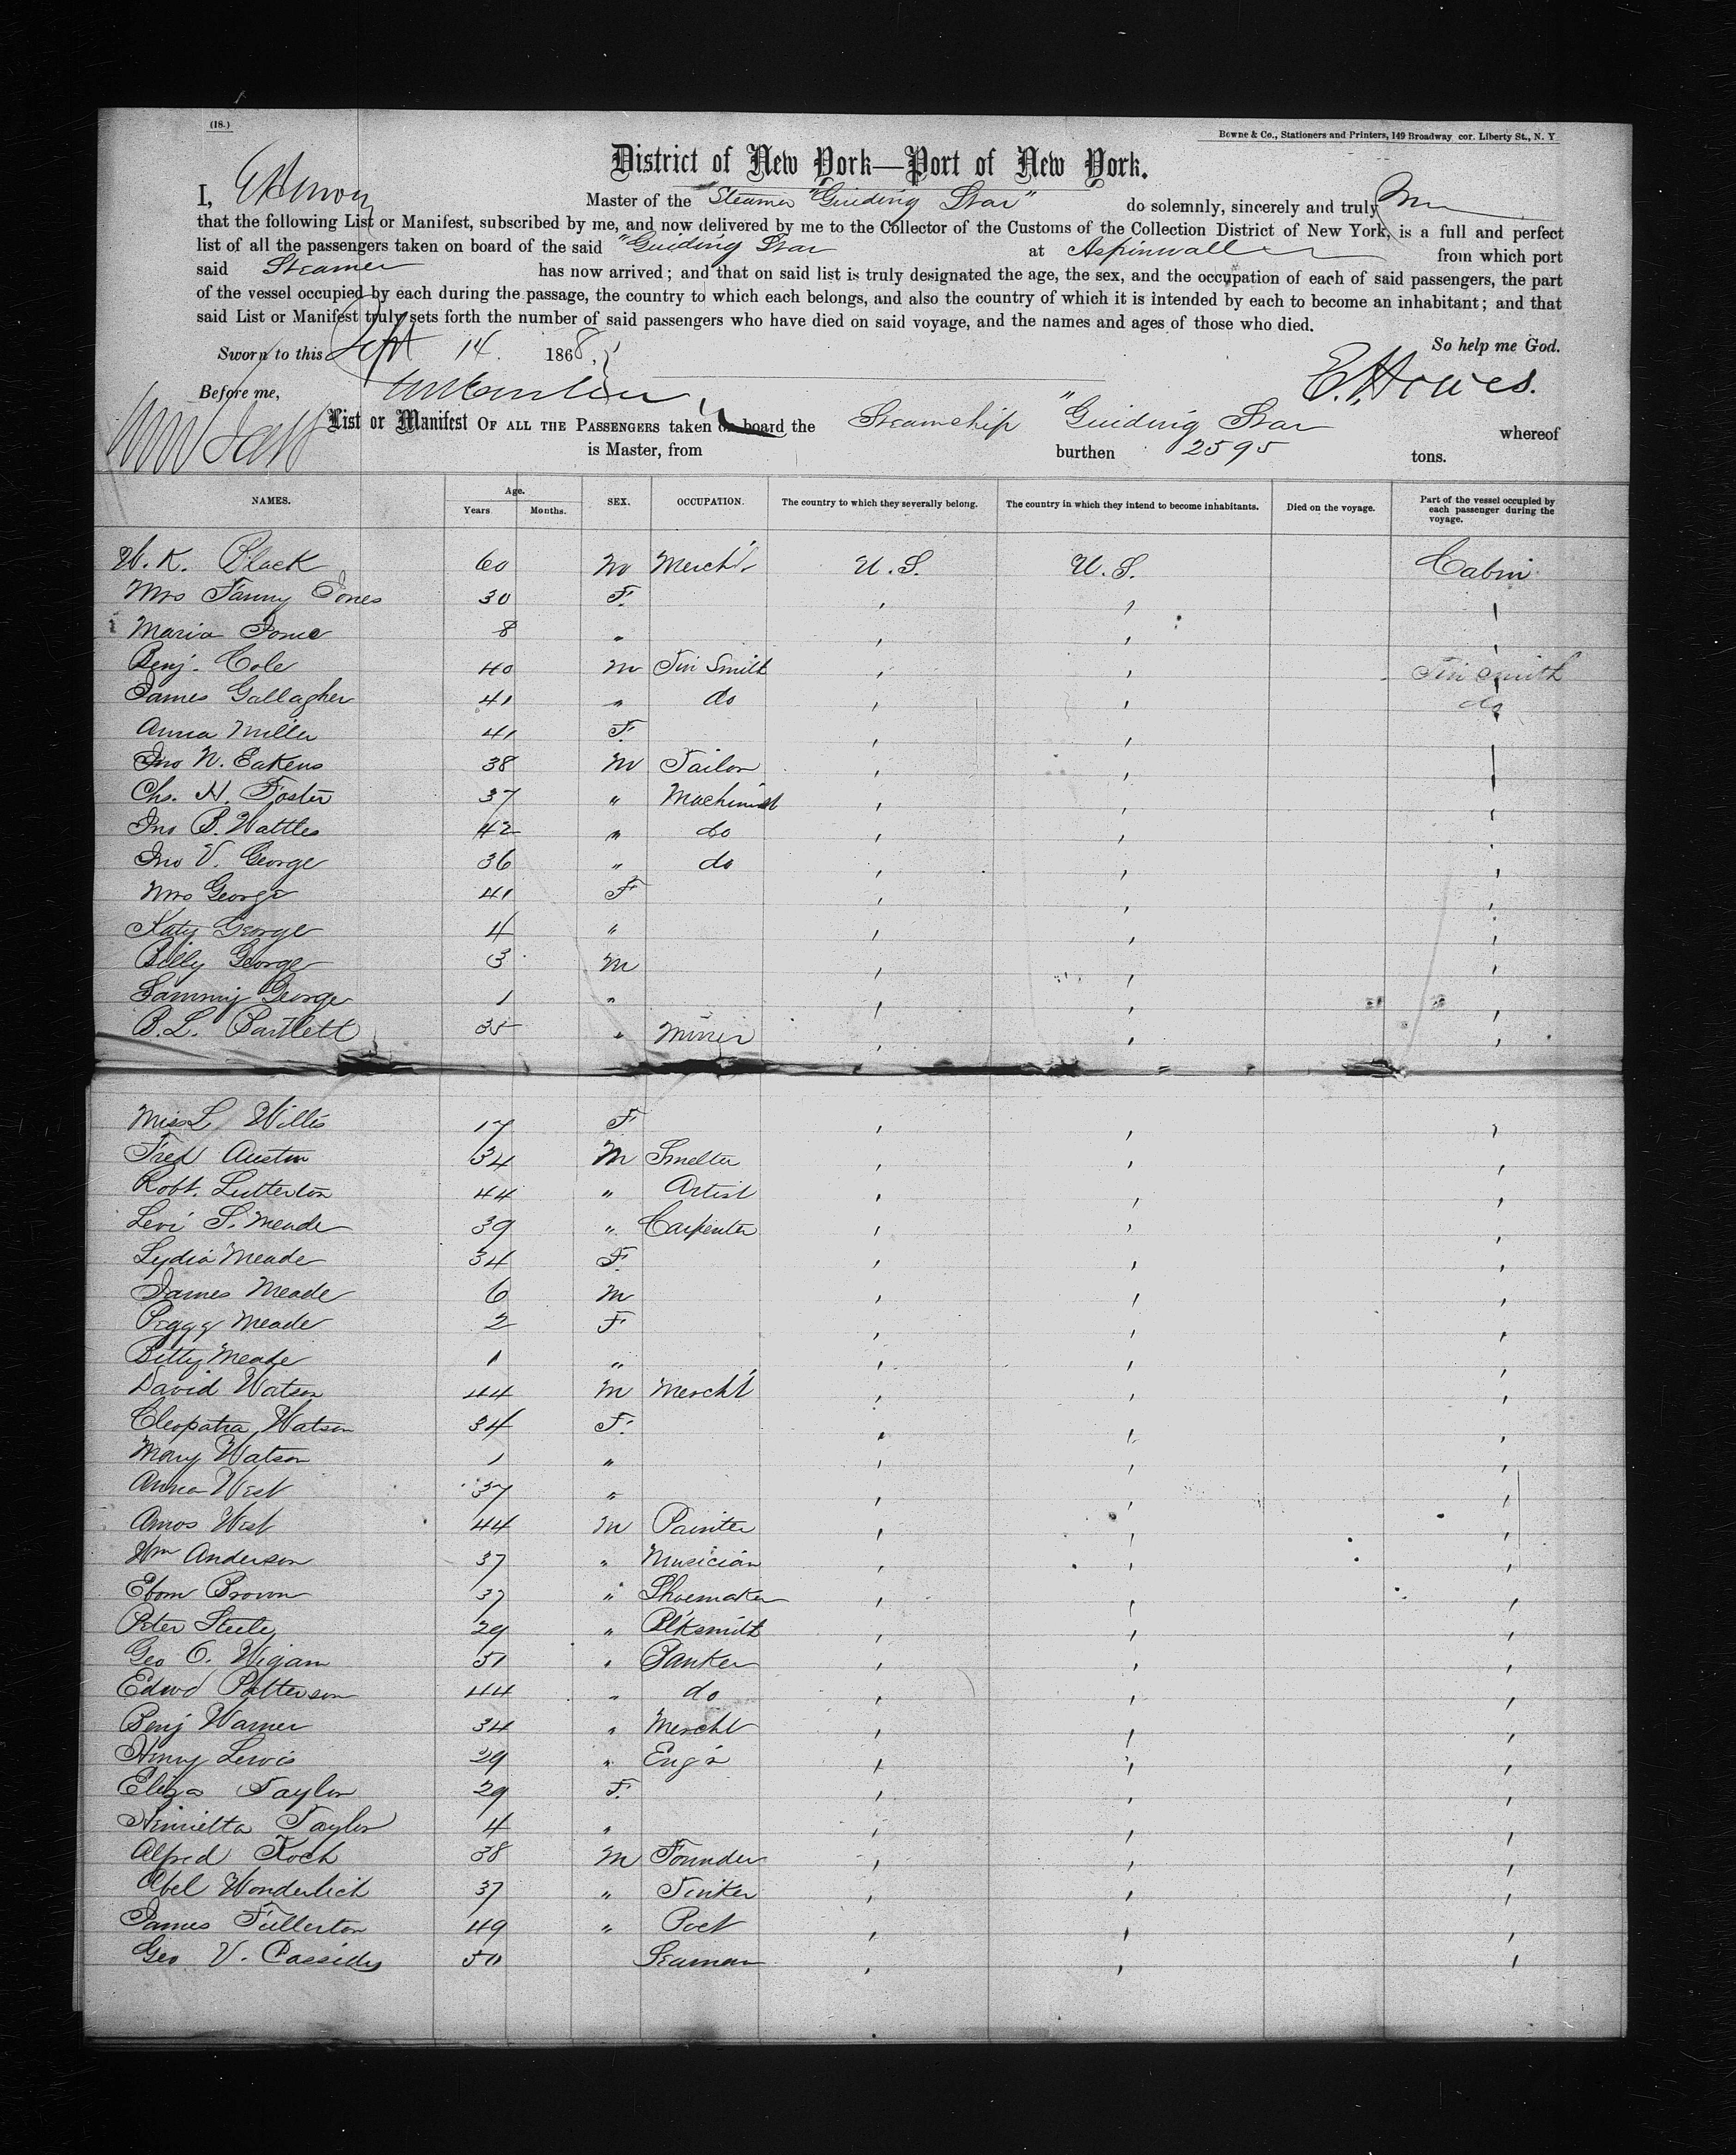 (18.)
Bowne & Co., Stationers and Printers, 149 Broadway cor. Liberty St., N. Y
District of New York—Port of New York.
I, Master of the Steamer "Guiding Star" do solemnly, sincerely and truly
that the following List or Manifest, subscribed by me, and now delivered by me to the Collector of the Customs of the Collection District of New York, is a full and perfect
list of all the passengers taken on board of the said "Guiding Star at Aspinwall from which port
said Steamer has now arrived; and that on said list is truly designated the age, the sex, and the occupation of each of said passengers, the part
of the vessel occupied by each during the passage, the country to which each belongs, and also the country of which it is intended by each to become an inhabitant; and that
said List or Manifest truly sets forth the number of said passengers who have died on said voyage, and the names and ages of those who died.
Sworn to this Sept 14. 1868. So help me God.
Before me, E. Howes.
List or Manifest OF ALL THE PASSENGERS taken on board the Steamship "Guiding Star whereof
is Master, from burthen 2595 tons.
NAMES. Age. Years Months. SEX. OCCUPATION. The country to which they severally belong. The country in which they intend to become inhabitants. Died on the voyage. Part of the vessel occupied by each passenger during the voyage.
W. K. Black 60 M Mercht U.S. U.S. Cabin
Mrs Fanny Jones 30 F.
Maria Jones 8 "
Benj. Cole 40 M Tin Smith Tin Smith
James Gallagher 41 " do do
Anna Miller 41 F.
Jno N. Eakens 38 M Tailor
Chs. H. Foster 37 " Machinist
Jno B. Wattles 42 " do
Jno V. George 36 " do
Mrs George 41 F
Katy George 4 "
Billy George 3 M
Sammy George 1 "
B. L. Bartlett 35 " Miner
Miss L Willis 17 F
Fred Austin 34 M Smelter
Robt. Lutterton 44 " Artist
Levi S. Meade 39 " Carpenter
Lydia Meade 34 F.
James Meade 6 M
Peggy Meade 2 F
Betty Meade 1 "
David Watson 44 M Mercht
Cleopatra Watson 34 F.
Mary Watson 1 "
Anna West 37 "
Amos West 44 M Painter
Wm Anderson 37 " Musician
Ebom Brown 37 " Shoemaker
Peter Steele 29 " Blksmith
Geo O. Wigam 51 " Banker
Edwd Patterson 44 " do
Benj Warner 34 " Mercht
Henry Lewis 29 " Eng'r
Eliza Taylor 29 F.
Henrietta Taylor 4 "
Alfred Koch 38 M Founder
Abel Wonderlich 37 " Tinker
James Fullerton 49 " Poet
Geo V. Cassidy 50 Seaman